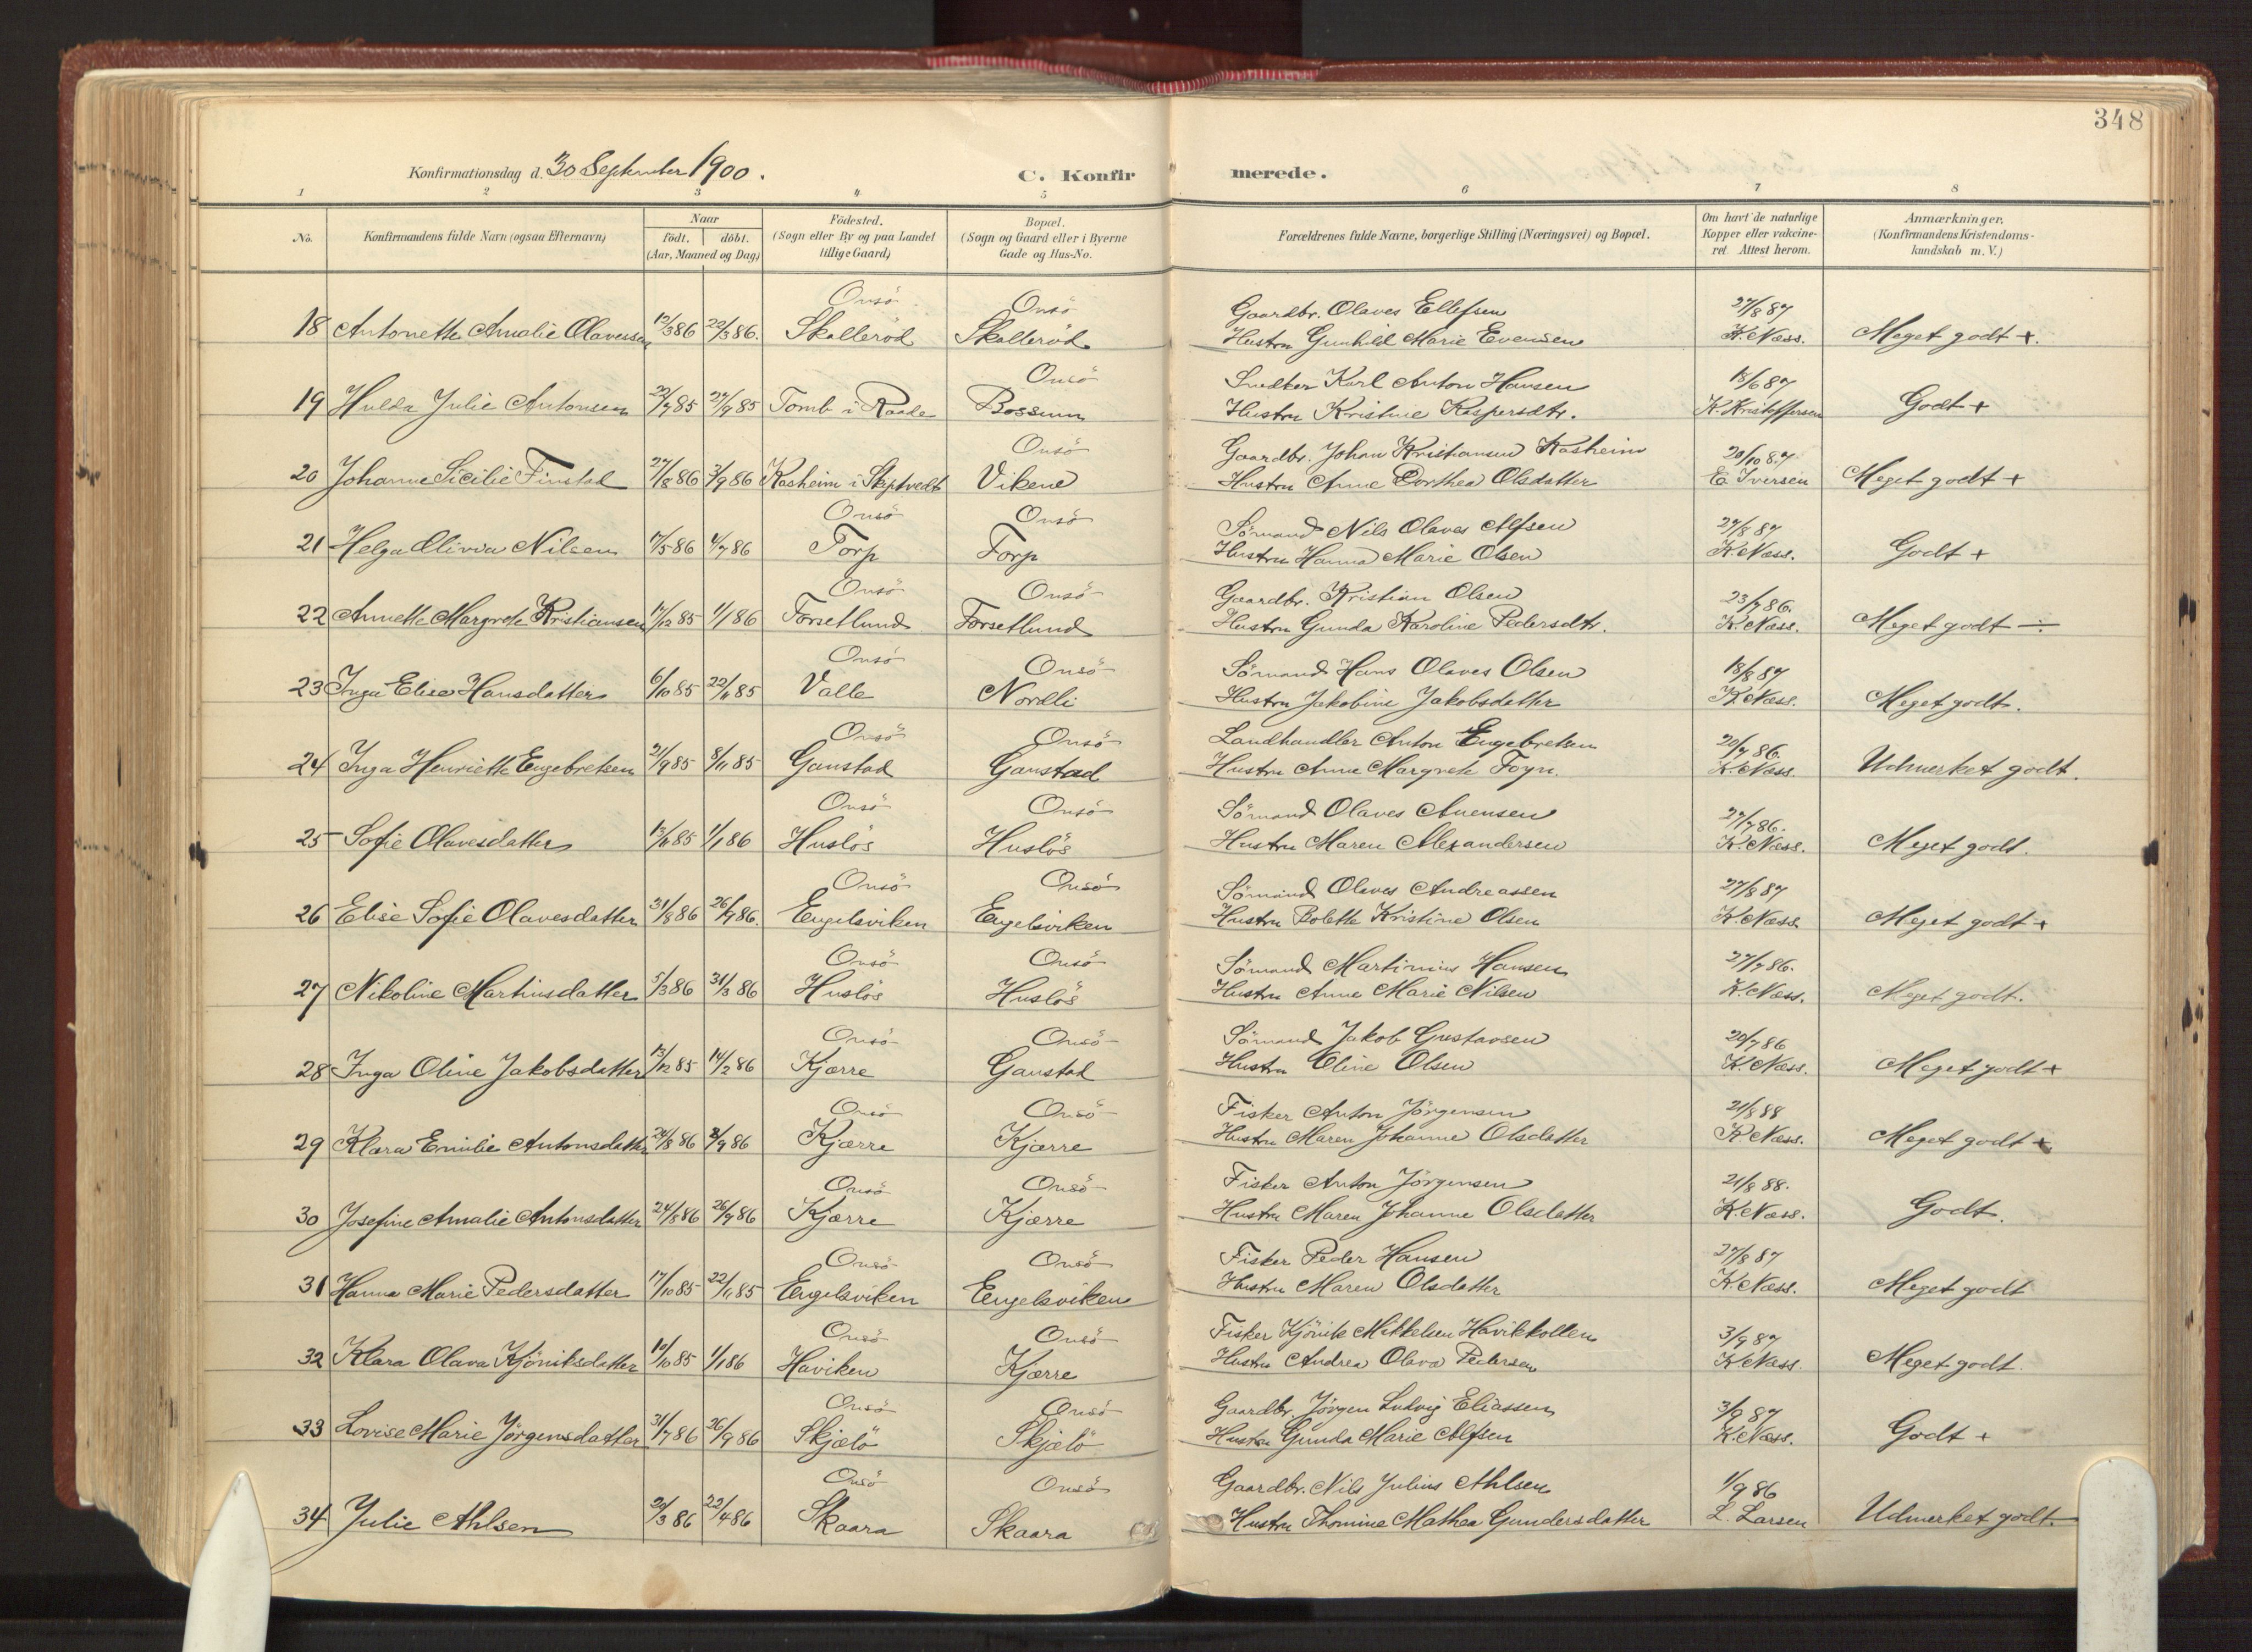 348
Konfirmationsdag d. 30 September 1900.
C. Konfirmerede.
1 2 3 4 5 6 7 8
No. Konfirmandens fulde Navn (ogsaa Efternavn) Naar födt. döbt. (Aar, Maaned og Dag) Födested. (Sogn eller By og paa Landet tillige Gaard) Bopæl. (Sogn og Gaard eller i Byerne Gade og Hus-No. Forældrenes fulde Navne, borgerlige Stilling (Næringsvei) og Bopæl. Om havt de naturlige Kopper eller vakcineret. Attest herom. Anmærkninger. (Konfirmandens Kristendomskundskab m. V.)
Onsö Onsö Gaardbr. Olaves Ellefsen 27/8 87
18 Antonette Amalie Olavessen 12/3 86 22/3 86. Skalleröd Skalleröd Hustru Gunhild Marie Evensen K. Næss. Meget godt +.
Onsö Snedker Karl Anton Hansen 18/6 87
19 Hulda Julie Antonsen 22/7 85 27/9 85 Tomb i Raade Bossum Hustru Kristine Kaspersdtr. K. Kristoffersen Godt +
Onsö Gaardbr. Johan Kristiansen Kasheim 20/10 87
20 Johanne Sicilie Finstad 27/8 86 3/9 86 Kasheim i Skiptvedt Vikene Hustru Anne Dorthea Olsdatter E Iversen Meget godt +
Onsö Onsö Sömand Nils Olaves Alfsen 27/8 87
21 Helga Olivia Nilsen 17/5 86 4/7 86 Torp Torp Hustru Hanna Marie Olsen K. Næss. Godt +
Onsö Onsö Gaardbr. Kristian Olsen 23/7 86.
22 Annette Margrete Kristiansen 17/12 85 1/1 86 Torsetlund Torsetlund Hustru Gunda Karoline Pedersdtr. K. Næss. Meget godt ÷
Onsö Onsö Sömand Hans Olaves Olsen 18/8 87
23 Inga Elise Hansdatter 6/10 85 22/11 85 Valle Nordli Hustru Jakobine Jakobsdatter K. Næss. Meget godt.
Onsö Onsö Landhandler Anton Engebretsen 20/7 86.
24 Inga Henriette Engebretsen 21/9 85 8/11 85 Gaustad Gaustad Hustru Anne Margrete Foyn. K. Næss. Udmerket godt.
Onsö Onsö Sömand Olaves Auensen 27/7 86.
25 Sofie Olavesdatter 13/11 85 1/1 86 Huslös Huslös Hustru Maren Alexandersen K. Næss. Meget godt.
Onsö Onsö Sömand Olaves Andreassen 27/8 87
26 Elise Sofie Olavesdatter 31/8 86 26/9 86. Engelsviken Engelsviken Hustru Bolette Kristine Olsen K. Næss Meget godt +
Onsö Onsö Sömand Martinius Hansen 27/7 86.
27 Nikoline Martinsdatter 5/3 86 31/3 86 Huslös Huslös Hustru Anne Marie Nilsen K. Næss. Meget godt.
Onsö Onsö Sömand Jakob Gustavsen 20/7 86
28 Inga Oline Jakobsdatter 13/12 85 14/2 86 Kjærre Gaustad Hustru Oline Olsen K. Næss. Meget godt +
Onsö Onsö Fisker Anton Jörgensen 21/8 88
29 Klara Emilie Antonsdatter 24/8 86 9/86 Kjærre Kjærre Hustru Maren Johanne Olsdatter K Næss. Meget godt +
Onsö Onsö Fisker Anton Jörgensen 21/8 88.
30 Josefine Amalie Antonsdatter 24/8 86 26/9 86 Kjærre Kjærre Hustru Maren Johanne Olsdatter K. Næss. Godt.
Onsö Onsö Fisker Peder Hansen 27/8 87
31 Hanna Marie Pedersdatter 17/10 85 22/11 85 Engelsviken Engelsviken Hustru Maren Olsdatter K. Næss. Meget godt
Onsö Onsö Fisker Kjönik Mikkelsen Havikkollen 3/9 87
32 Klara Olava Kjöniksdatter 10/10 85 1/1 86 Haviken Kjærre Hustru Andrea Olava Pedersen K. Næss. Meget godt.
Onsö Onsö Gaardbr. Jörgen Ludvig Eliassen 3/9 87
33 Lovise Marie Jörgensdatter 31/7 86 26/9 86 Skjælö Skjælö Hustru Gunda Marie Alfsen K. Næss. Godt +
Onsö Onsö Gaardbr. Nils Julius Ahlsen 1/9 86
34 Julie Ahlsen 20/3 86 22/4 86 Skaara Skaara Hustru Thomine Mathea Gundersdatter L. Larsen Udmerket godt.